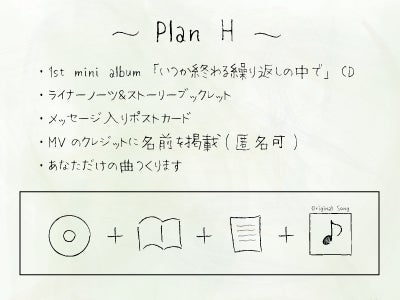 ～ Plan H ～
・1st mini album 「いつか終わる繰り返しの中で」 CD
・ライナーノーツ&ストーリーブックレット
・メッセージ入りポストカード
・MVのクレジットに名前を掲載(匿名可)
・あなただけの曲つくります
Original Song
+ + +